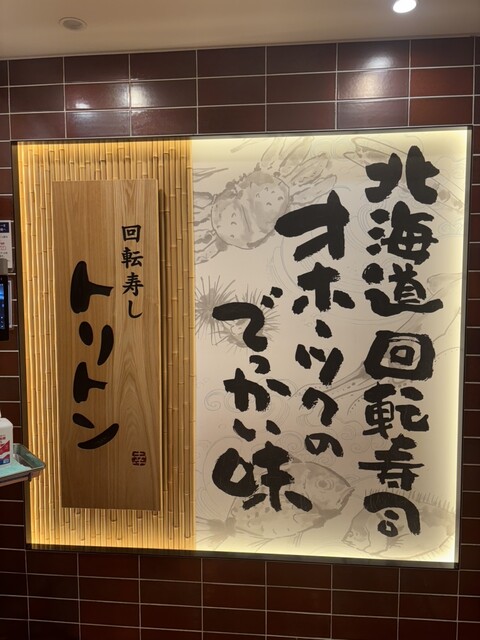 北海道回転寿司
オホーツクの
でっかい味
回転寿し
トリトン